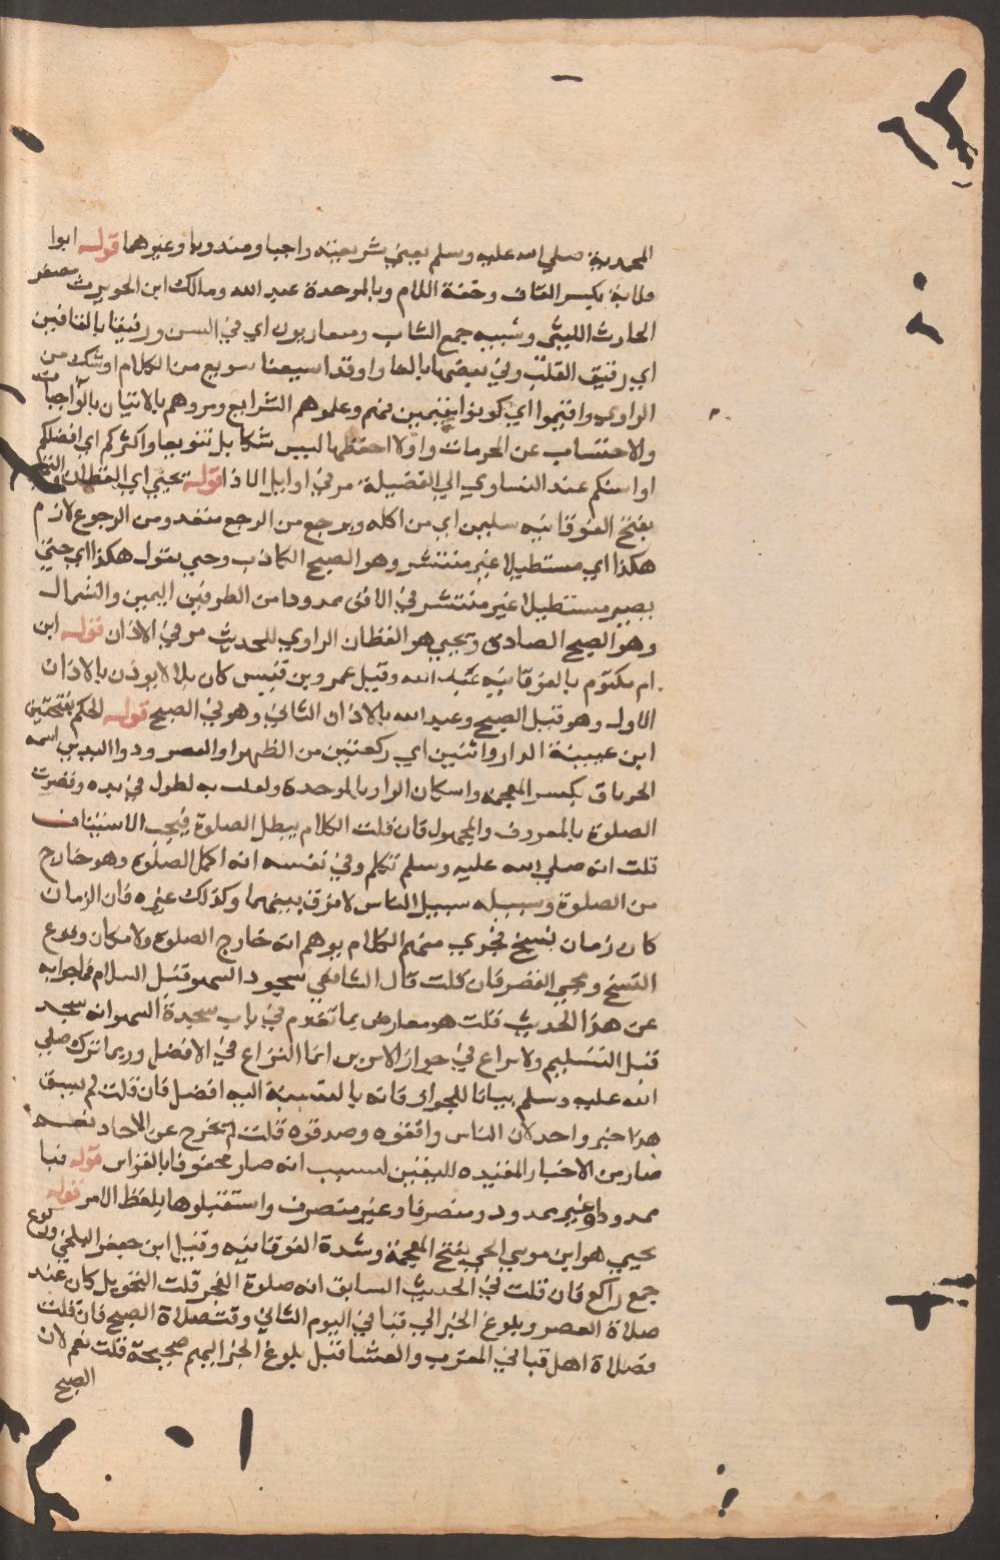 المحمدية صلي الله عليه وسلم يعني شريعته واجبا ومندوبا وغيرهما قوله ابوا
قلابة بكسر القاف وخفة اللام وبالموحدة عبد الله ومالك ابن الحويرث مصغر
الحارث الليثي وشببه جمع الشاب ومتقاربون اي في السن ورفيقا بالفا فين
اي رقيق القلب وفي بعضها بالفا واوقد اسبعنا سويع من الكلام او شك من
الراوي واقيموا اي كونوا مقيمين فيهم وعلموهم الشرايع ومروهم بالاتيان بالواجبات
والاجتناب عن المحرمات واولا احفظها ليس شكا بل تنويعا واكثركم اي افضلكم
او اسنكم عند التساوي الي الفضيلة مر في اوايل الاذا قوله يحيي اي القطان والتيم
بفتح الفوقانيه سليمن اي من اكله ويرجع من الرجع متعد ومن الرجوع لازم
هكذا اي مستطيلا غير منتشر وهو الصبح الكاذب وحتي يقول هكذا اي حتي
يصير مستطيلا غير منتشر في الافق ممدودا من الطرفين اليمين والشمال
وهو الصبح الصادق ويحيي هو القطان الراوي للحديث مر في الاذان قوله ابن
ام مكتوم بالفوقانيه عبد الله وقيل عمرو بن قيس كان بلالا يوذن بالاذان
الاول وهو قبل الصبح وعبد الله بالاذان الثاني وهو في الصبح قوله الحكم بفتحتين
ابن عيينة الدار واثنين اي ركعتين من الظهر او العصر وذوا اليدين اسمه
الخرباق بكسر المعجمه واسكان الرا وبالموحدة ولقب به لطول في يده وقصرت
الصلوة بالمعروف والمجهول فان قلت الكلام يبطل الصلوة فيجب الاستيناف
قلت انه صلي الله عليه وسلم تكلم وفي نفسه انه اكمل الصلوة وهو خارج
من الصلوة وسبيله سبيل الناس لا فرق بينهما وكذلك غيره فان الزمان
كان زمان نسخ فجري منهم الكلام بوهم انه خارج الصلوة ولامكان وقوع
النسخ ومجي القصر فان قلت قال الشافعي سجود السهو قبل السلام فما جوابه
عن هذا الحديث قلت هو معارض بما تقدم في باب سجدة السهو انه سجد
قبل التسليم ولا نزاع في جواز الامرين انما النزاع في الافضل وربما ترك صلي
الله عليه وسلم بيانا للجواز فانه بالنسبة اليه افضل فان قلت لم يسبق
هذا خبر واحد لان الناس وافقوه وصدقوه قلت لم يخرج عن الاحاد نفسه
صار من الاخبار المفيده لليقين بسبب انه صار محفوفا بالقراين قوله قبا
ممدود او غير ممدود ومنصرفا وغير منصرف واستقبلوها بلفظ الامر قوله
يحيي هو ابن موسي الحي بفتح المعجمة وشدة الفوقانيه وقيل ابن جعفر البلخي وركوع
جمع راكع فان قلت في الحديث السابق انه صلوة الفجر قلت التحويل كان عند
صلاة العصر وبلوغ الخبر الي قبا في اليوم الثاني وقت صلاة الصبح فان قلت
فصلاة اهل قبا في المغرب والعشا قبل بلوغ الخبر اليهم صحيحة قلت نعم لان
الصبح